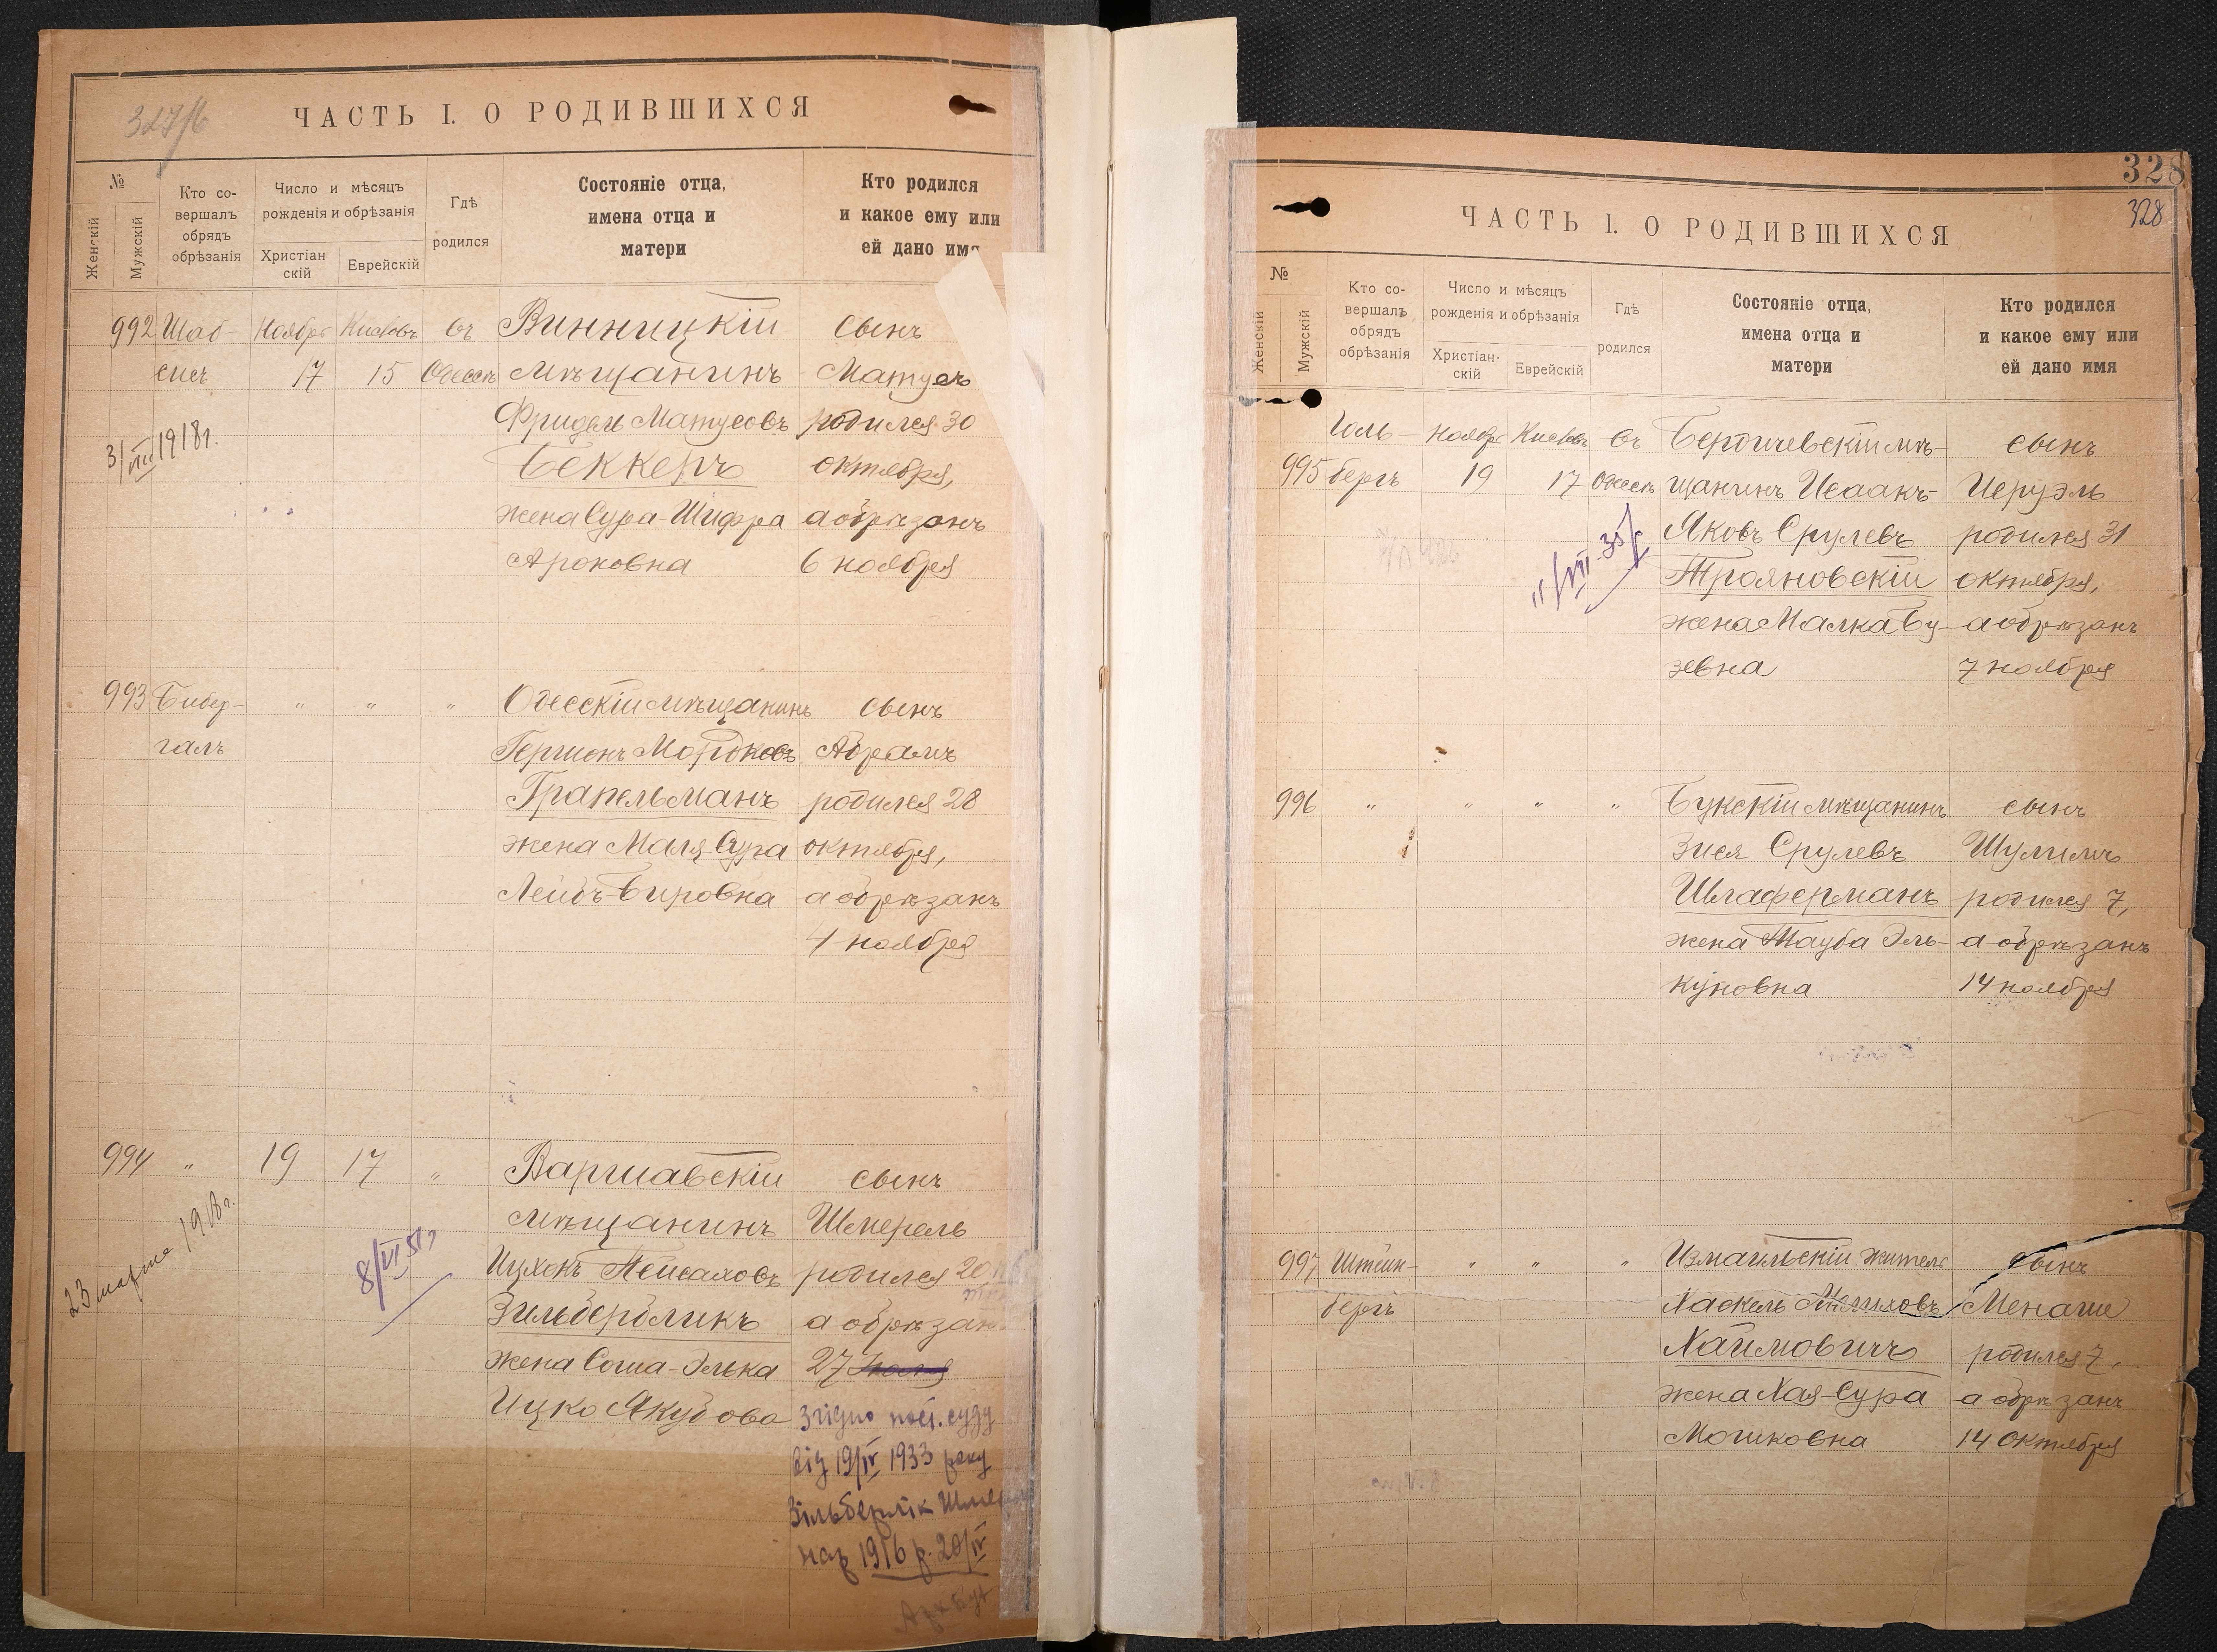 327/б
ЧАСТЬ I. О РОДИВШИХСЯ
№
Женскій
Мужскій
Кто со-
вершалъ
обрядъ
обрѣзанія
Число и мѣсяцъ
рожденія и обрѣзанія
Христіан
скій
Еврейскій
Гдѣ
родился
Состояніе отца,
имена отца и
матери
Кто родился
и какое ему или
ей дано имя
992 Шаб- Ноября Кислевъ въ Винницкій сынъ
сисъ 17 15 Одессѣ мѣщанинъ Матусъ
Фридель Матусовъ родился 30
3/VIII 1918 г.
Беккеръ октября,
жена Сура-Шифра а обрѣзанъ
Ароновна 6 ноября
993 Бибер- " " " Одесскій мѣщанинъ сынъ
галъ Гершонъ Мордковъ Абрамъ
Грапельманъ родился 28
жена Маля-Сура октября,
Лейбъ-Бировна а обрѣзанъ
4 ноября
994 " 19 17 " Варшавскій сынъ
мѣщанинъ Шмерель
23 марта 1918 г.
8/VI 51
Ицхокъ Пейсаховъ родился 20
Зильбербликъ а обрѣзанъ
жена Соша-Элька 27
Ицко Якубова Згідно пост. суду
від 19/IV 1933 року
Зільберлік
нар 1916 р. 20/IV
328
328
ЧАСТЬ I. О РОДИВШИХСЯ
№
Женскій
Мужскій
Кто со-
вершалъ
обрядъ
обрѣзанія
Число и мѣсяцъ
рожденія и обрѣзанія
Христіан-
скій
Еврейскій
Гдѣ
родился
Состояніе отца,
имена отца и
матери
Кто родился
и какое ему или
ей дано имя
Голь- Ноября Кислевъ въ Бердичевскій мѣ- сынъ
995 бергъ 19 17 Одессѣ щанинъ Исаакъ- Иеруэль
Яковъ Срулевъ родился 31
11/VII-35 г.
Трояновскій октября,
жена Малка Бу- а обрѣзанъ
зевна 7 ноября
996 " " " " Букскій мѣщанинъ сынъ
Зися Срулевъ Шулимъ
Шлаферманъ родился 7,
жена Тауба Эль- а обрѣзанъ
куновна 14 ноября
997 Штейн- " " " Измаильскій житель сынъ
бергъ Хаскель Менаше
Хаимовичъ родился 7,
жена Хая-Сура а обрѣзанъ
Мошковна 14 Октября